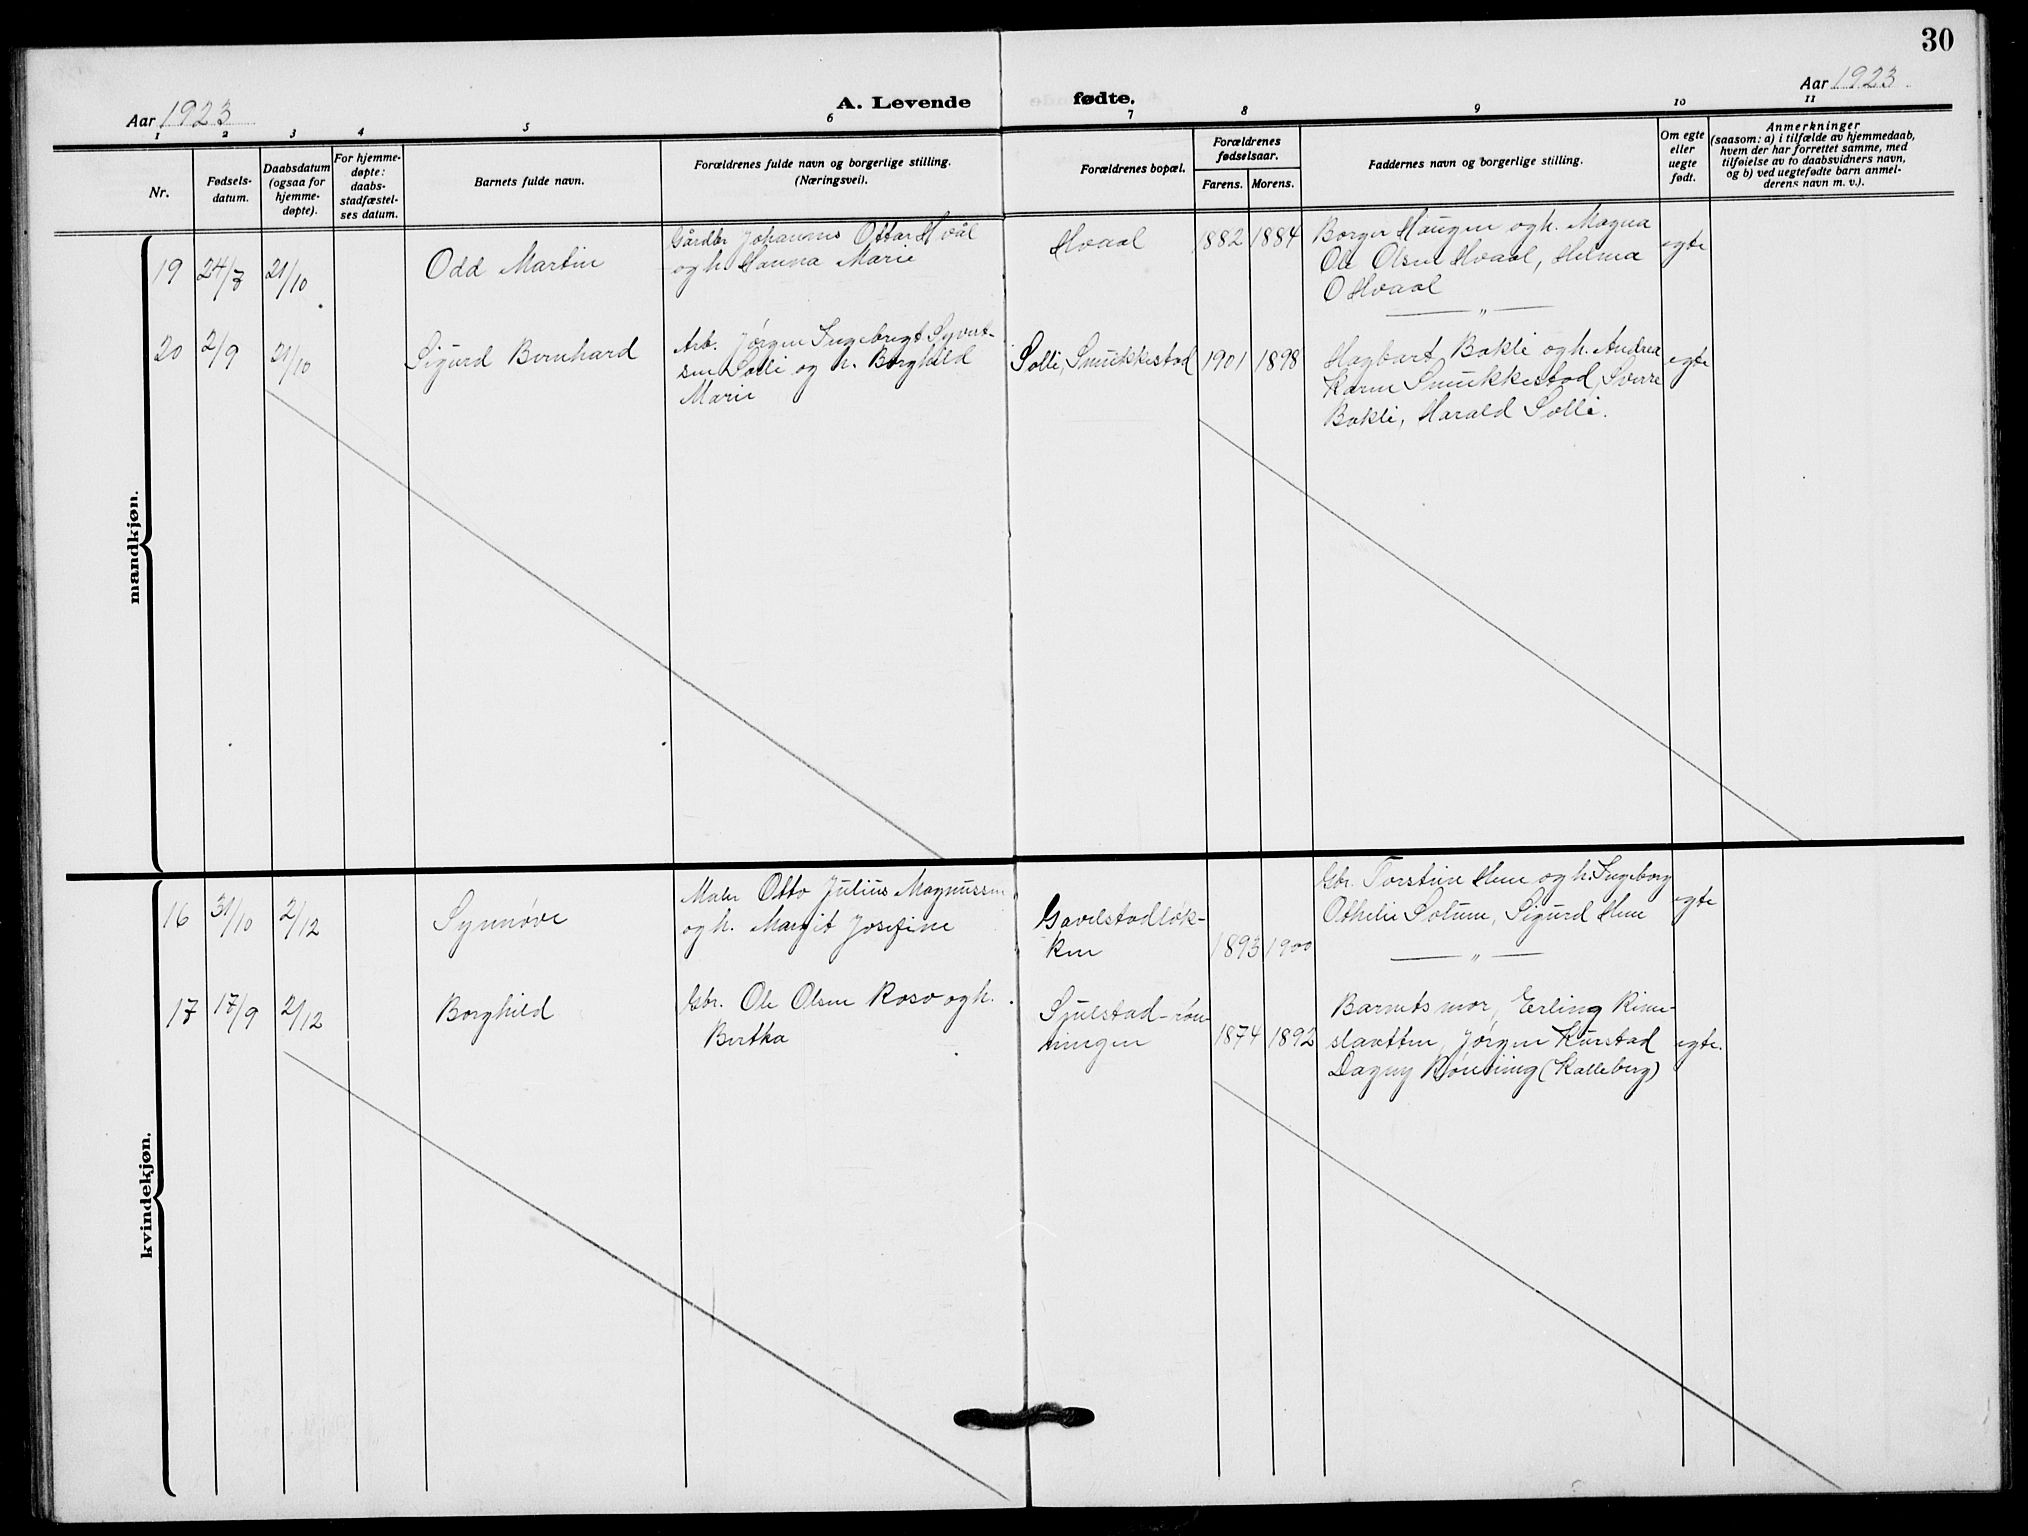 30
Aar 1923
A. Levende fødte.
Aar 1923.
1 2 3 4 5 6 7 8 9 10 11
Nr.
Fødsels-
datum.
Daabsdatum
(ogsaa for
hjemme-
døpte).
For hjemme-
døpte:
daabs-
stadfæstel-
ses datum.
Barnets fulde navn.
Forældrenes fulde navn og borgerlige stilling.
(Næringsvei).
Forældrenes bopæl.
Forældrenes
fødselsaar.
Farens. Morens.
Faddernes navn og borgerlige stilling.
Om egte
eller
uegte
født.
Anmerkninger
(saasom: a) i tilfælde av hjemmedaab,
hvem der har forrettet samme, med
tilføielse av to daabsvidners navn,
og b) ved uegtefødte barn anmel-
derens navn m. v.).
mandkjøn.
19 24/7 21/10 Odd Martin
Gårdbr Johannes Ottar Hvål
og h. Hanna Marie
Hvaal 1882 1884
Borger Haugen og h. Magna
Ole Olsen Hvaal, Helma
O Hvaal
egte
— „ —
20 2/9 21/10 Sigurd Bernhard
Arb. Jørgen Ingebrigt Syvert-
sen Solli og h. Borghild
Marie
Solli, Smukkestad 1901 1898
Hagbart Bakli og h. Andrea
Karen Smukkestad, Sverre
Bakli, Harald Solli.
egte
kvindekjøn.
16 31/10 2/12 Synnøve
Maler Otto Julius Magnussen
og h. Margit Josefine
Gavelstadløk-
ken
1893 1900
Gbr. Torstein Hem og h. Ingeborg
Othelie Solum, Sigurd Hem
egte
— „ —
17 17/9 2/12 Borghild
Gbr. Ole Olsen Roso og h.
Bertha
Sjulstad-røn-
ningen
1874 1892
Barnets mor, Erling Rime-
slaatten, Jørgen Kurstad
Dagny Rønning (Kalleberg)
egte.